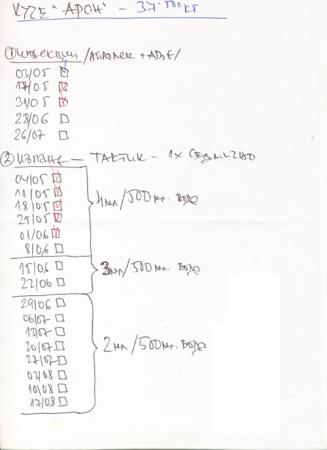 КУЧЕ "АРОН" - 37.500 КГ
① ИНЖЕКЦИИ /АЙРОМЕК + АДЗЕ/
03/05
17/05
31/05
28/06
26/07
② КЪПАНЕ — ТАКТИК - 1x СЕДМИЧНО
04/05
11/05
18/05
25/05
01/06
8/06
4 мл/500 мл. ВОДА
15/06
22/06
3 мл/500 мл. ВОДА
29/06
06/07
13/07
20/07
27/07
03/08
10/08
17/08
2 мл/500 мл. ВОДА